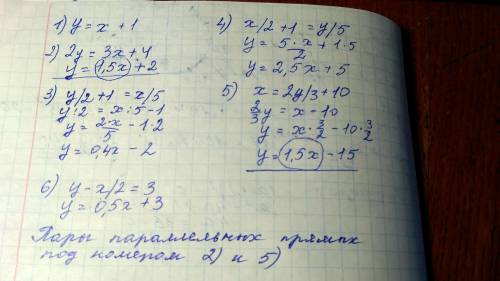 1) y = x + 1
2) 2y = 3x + 4
y = 1,5x + 2
3) y/2 + 1 = x/5
y : 2 = x : 5 - 1
y = 2·x/5 - 1·2
y = 0,4x - 2
6) y - x/2 = 3
y = 0,5x + 3
4) x/2 + 1 = y/5
y = 5·x/2 + 1·5
y = 2,5x + 5
5) x = 2y/3 + 10
2/3 y = x - 10
y = x·3/2 - 10·3/2
y = 1,5x - 15
Пары параллельных прямых
под номером 2) и 5)